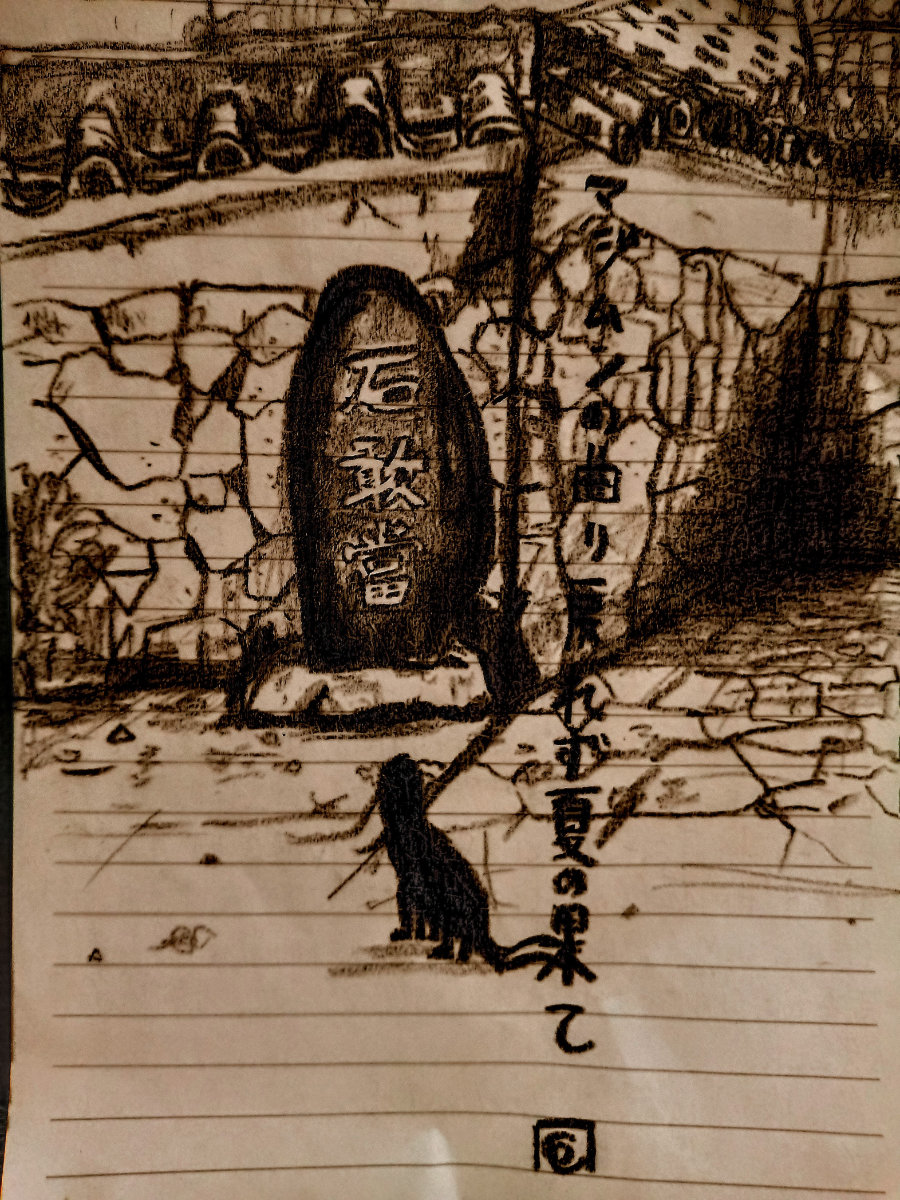 マジムンの曲り戻れず夏の果て
石敢當